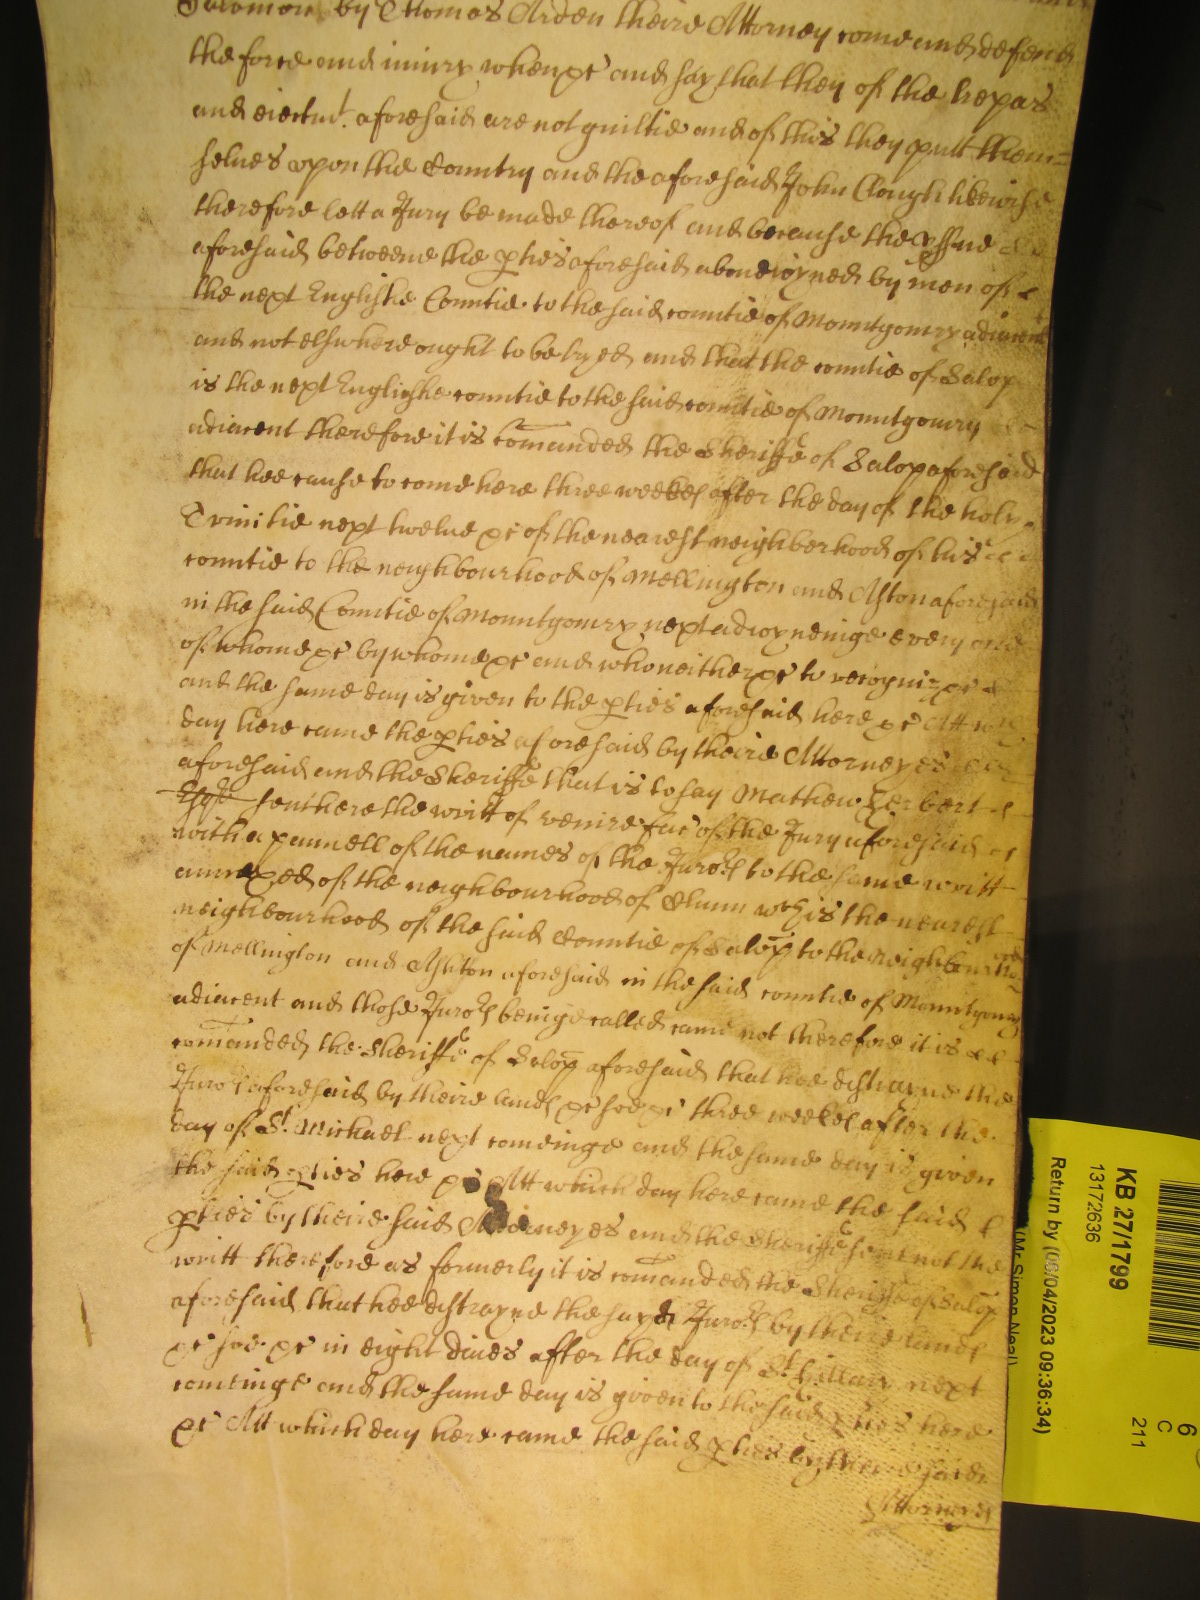 Salomon by Thomas Arden theire Attorney come and defend
the force and iniury when &c and say that they of the trepas
and eiectmt. aforesaid are not guiltie and of this they putt them=
selues vpon the Country and the aforesaid John Clough likewise
therefore lett a Jury be made thereof and because the yssue
aforesaid betweene the pties aforesaid aboue ioyned by men of
the next Englishe Countie to the said countie of Mountgomry adiacent
and not elswhere ought to be tryed and that the countie of Salop
is the next Englishe countie to the said countie of Mountgomry
adiacent therefore it is comanded the Sheriffe of Salop aforesaid
that hee cause to come here three weekes after the day of the holy
Trinitie next twelue &c of the nearest neighberhood of his
countie to the neighbourhood of Mellington and Aston aforesaid
in the said Countie of Mountgomry next adioyneinge every one
of whome &c by whome &c and who neither &c to recogniz &c
and the same day is given to the pties aforesaid here &c Att wch
day here came the pties aforesaid by theire Attorneyes
aforesaid and the Sheriffe that is to say Mathew Herbert
Esqr sent here the writt of venire fac of the Jury aforesaid
with a pannell of the names of the Juro:s to the same writt
annexed of the neighbourhood of Clunn wch is the nearest
neighbourhood of the said Countie of Salop to the neighbourhood
of Mellington and Ashton aforesaid in the said countie of Mountgomry
adiacent and those Juro:s beinge called came not therefore it is
comanded the Sheriffe of Salop aforesaid that hee distrayne the
Juro:s aforesaid by theire lands &c soe &c three weekes after the
day of St. Michael next comeinge and the same day is given
the said pties here &c Att which day here came the said
pties by theire said Attorneyes and the Sheriffe sent not the
writt therefore as formerly it is comanded the Sheriffe of Salop
aforesaid that hee distrayne the sayd Juro:s by theire lands
&c soe &c in eight daies after the day of St. Hillary next
comeinge and the same day is given to the said pties here
&c Att which day here came the said pties by theire said
Attorneyes
KB 27/1799
13172636
Return by (06/04/2023 09:36:34)
(Mr Simon Neal)
6
C
211